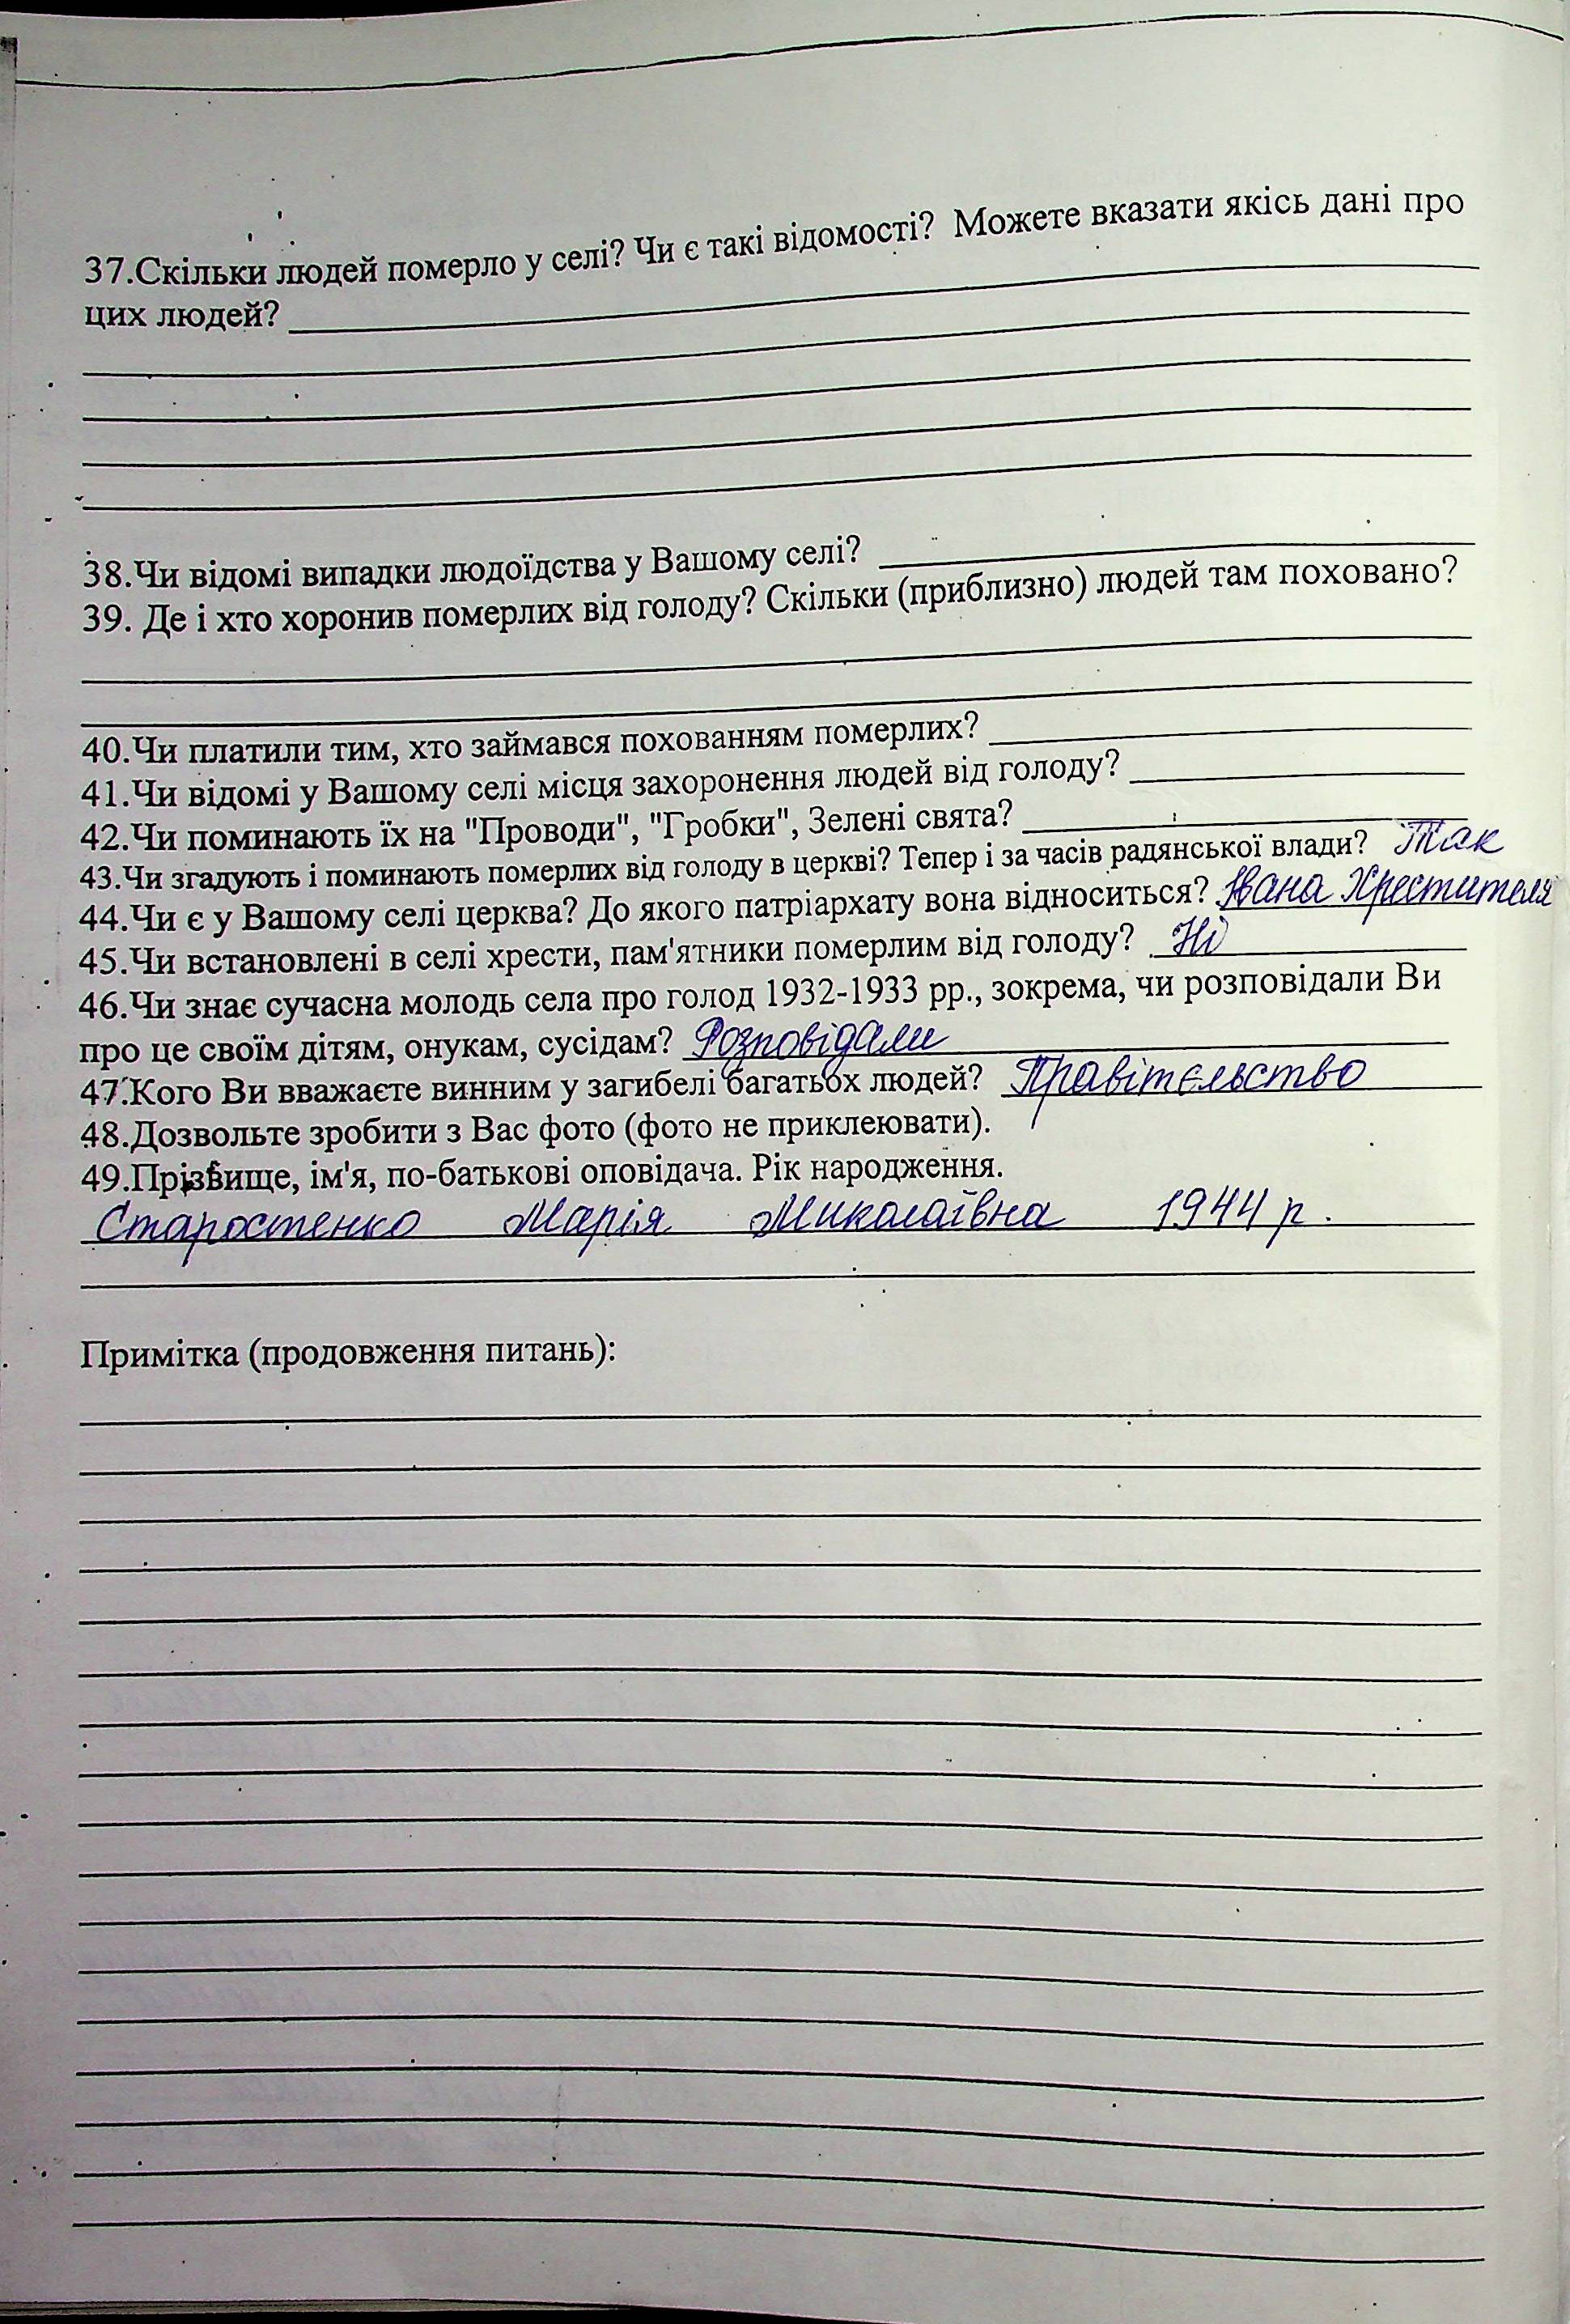 37.Скільки людей померло у селі? Чи є такі відомості? Можете вказати якісь дані про
цих людей?
38.Чи відомі випадки людоїдства у Вашому селі?
39. Де і хто хоронив померлих від голоду? Скільки (приблизно) людей там поховано?
40.Чи платили тим, хто займався похованням померлих?
41.Чи відомі у Вашому селі місця захоронення людей від голоду?
42.Чи поминають їх на "Проводи", "Гробки", Зелені свята?
43.Чи згадують і поминають померлих від голоду в церкві? Тепер і за часів радянської влади? Так
44.Чи є у Вашому селі церква? До якого патріархату вона відноситься? Івана Хрестителя
45.Чи встановлені в селі хрести, пам'ятники померлим від голоду? Ні
46.Чи знає сучасна молодь села про голод 1932-1933 рр., зокрема, чи розповідали Ви
про це своїм дітям, онукам, сусідам? Розповідали
47.Кого Ви вважаєте винним у загибелі багатьох людей? Правітєльство
48.Дозвольте зробити з Вас фото (фото не приклеювати).
49.Прізвище, ім'я, по-батькові оповідача. Рік народження.
Старостенко Марія Миколаївна 1944 р.
Примітка (продовження питань):